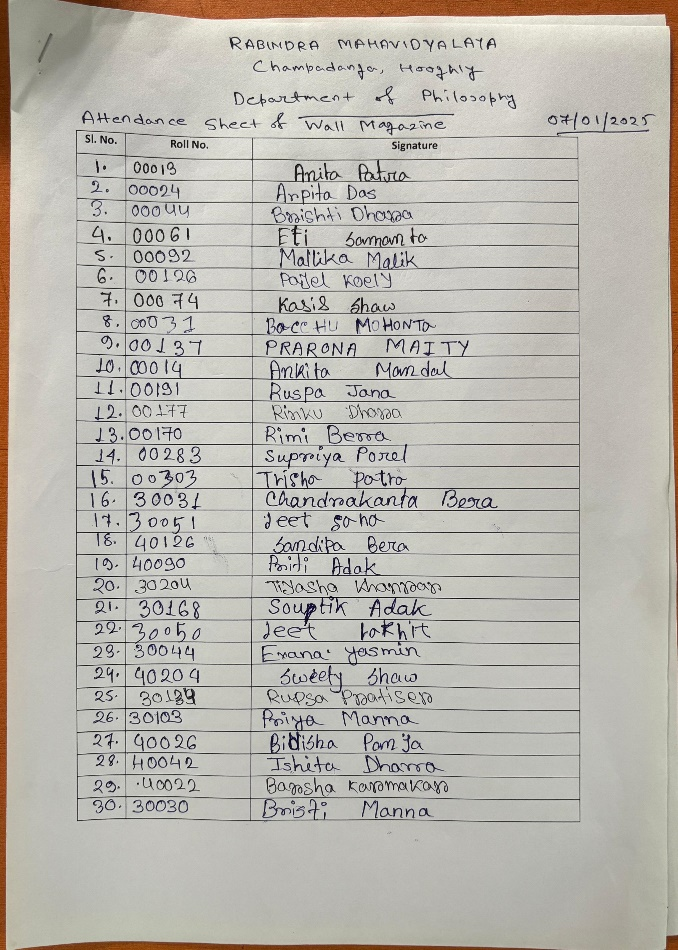 RABINDRA MAHAVIDYALAYA
Champadanga, Hooghly
Department of Philosophy
Attendance Sheet of Wall Magazine 07/01/2025
Sl. No. Roll No. Signature
1. 00019 Anita Patra
2. 00024 Arpita Das
3. 00044 Brishti Dhara
4. 00061 Eti Samanta
5. 00092 Mallika Malik
6. 00126 Payel Koely
7. 00074 Kasis Shaw
8. 00031 BaccHU MOHONTA
9. 00137 PRARONA MAITY
10. 00014 Ankita Mandal
11. 00191 Ruspa Jana
12. 00177 Rinku Dhara
13. 00170 Rimi Berra
14. 00283 Supriya Porel
15. 00303 Trisha Patra
16. 30031 Chandrakanta Bera
17. 30051 Jeet saha
18. 40126 Sandipa Bera
19. 40090 Priti Adak
20. 30204 Tiyasha Khamaru
21. 30168 Souptik Adak
22. 30050 Jeet Lakhit
23. 30044 Erana Yasmin
24. 40204 Sweety Shaw
25. Rupsa Pratiser
26. 30103 Priya Manna
27. 40026 Bidisha Panja
28. 40042 Ishita Dharra
29. 40022 Barsha Karmakar
30. 30030 Bristi Manna